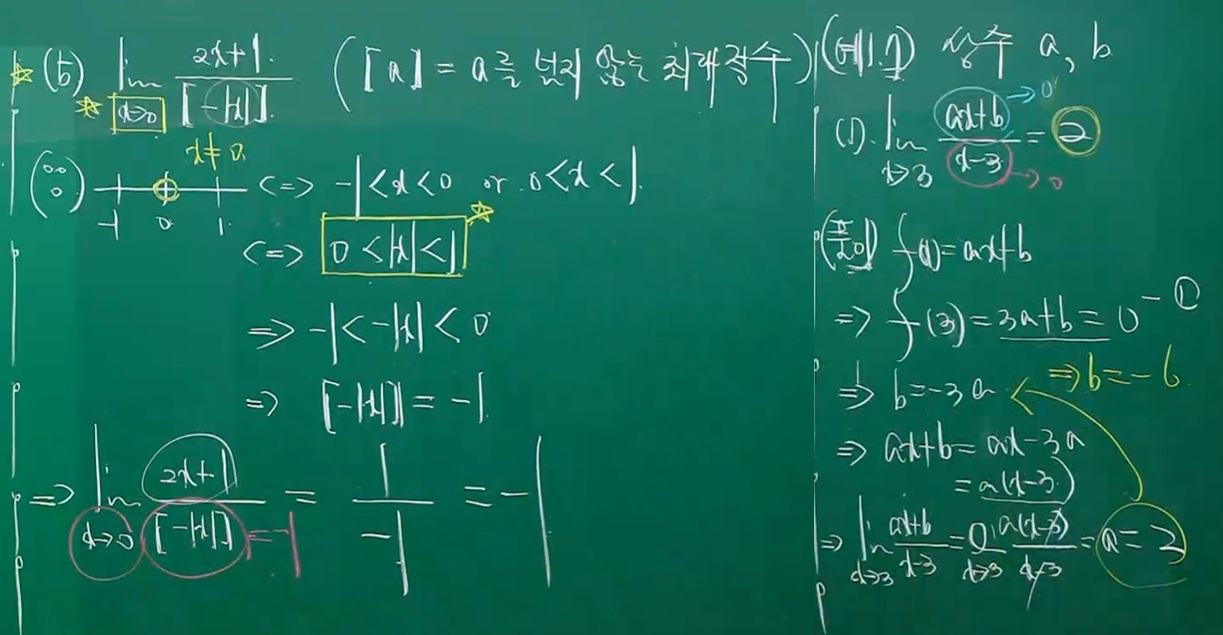 (b) lim x→0 2x+1 / [-|x|] ([a] = a를 넘지 않는 최대정수)
x≠0
-1 0 1 <=> -1<x<0 or 0<x<1
<=> 0<|x|<1
=> -1<-|x|<0
=> [-|x|] = -1
=> lim x→0 2x+1 / [-|x|] = -1 = 1 / -1 = -1
상수 a, b
(1). lim x→3 ax+b / x-3 = 2
→0
→0
f(x)=ax+b
=> f(3)=3a+b=0 -①
=> b=-3a => b=-6
=> ax+b=ax-3a
=a(x-3)
=> lim x→3 ax+b / x-3 = lim x→3 a(x-3) / x-3 = a=2